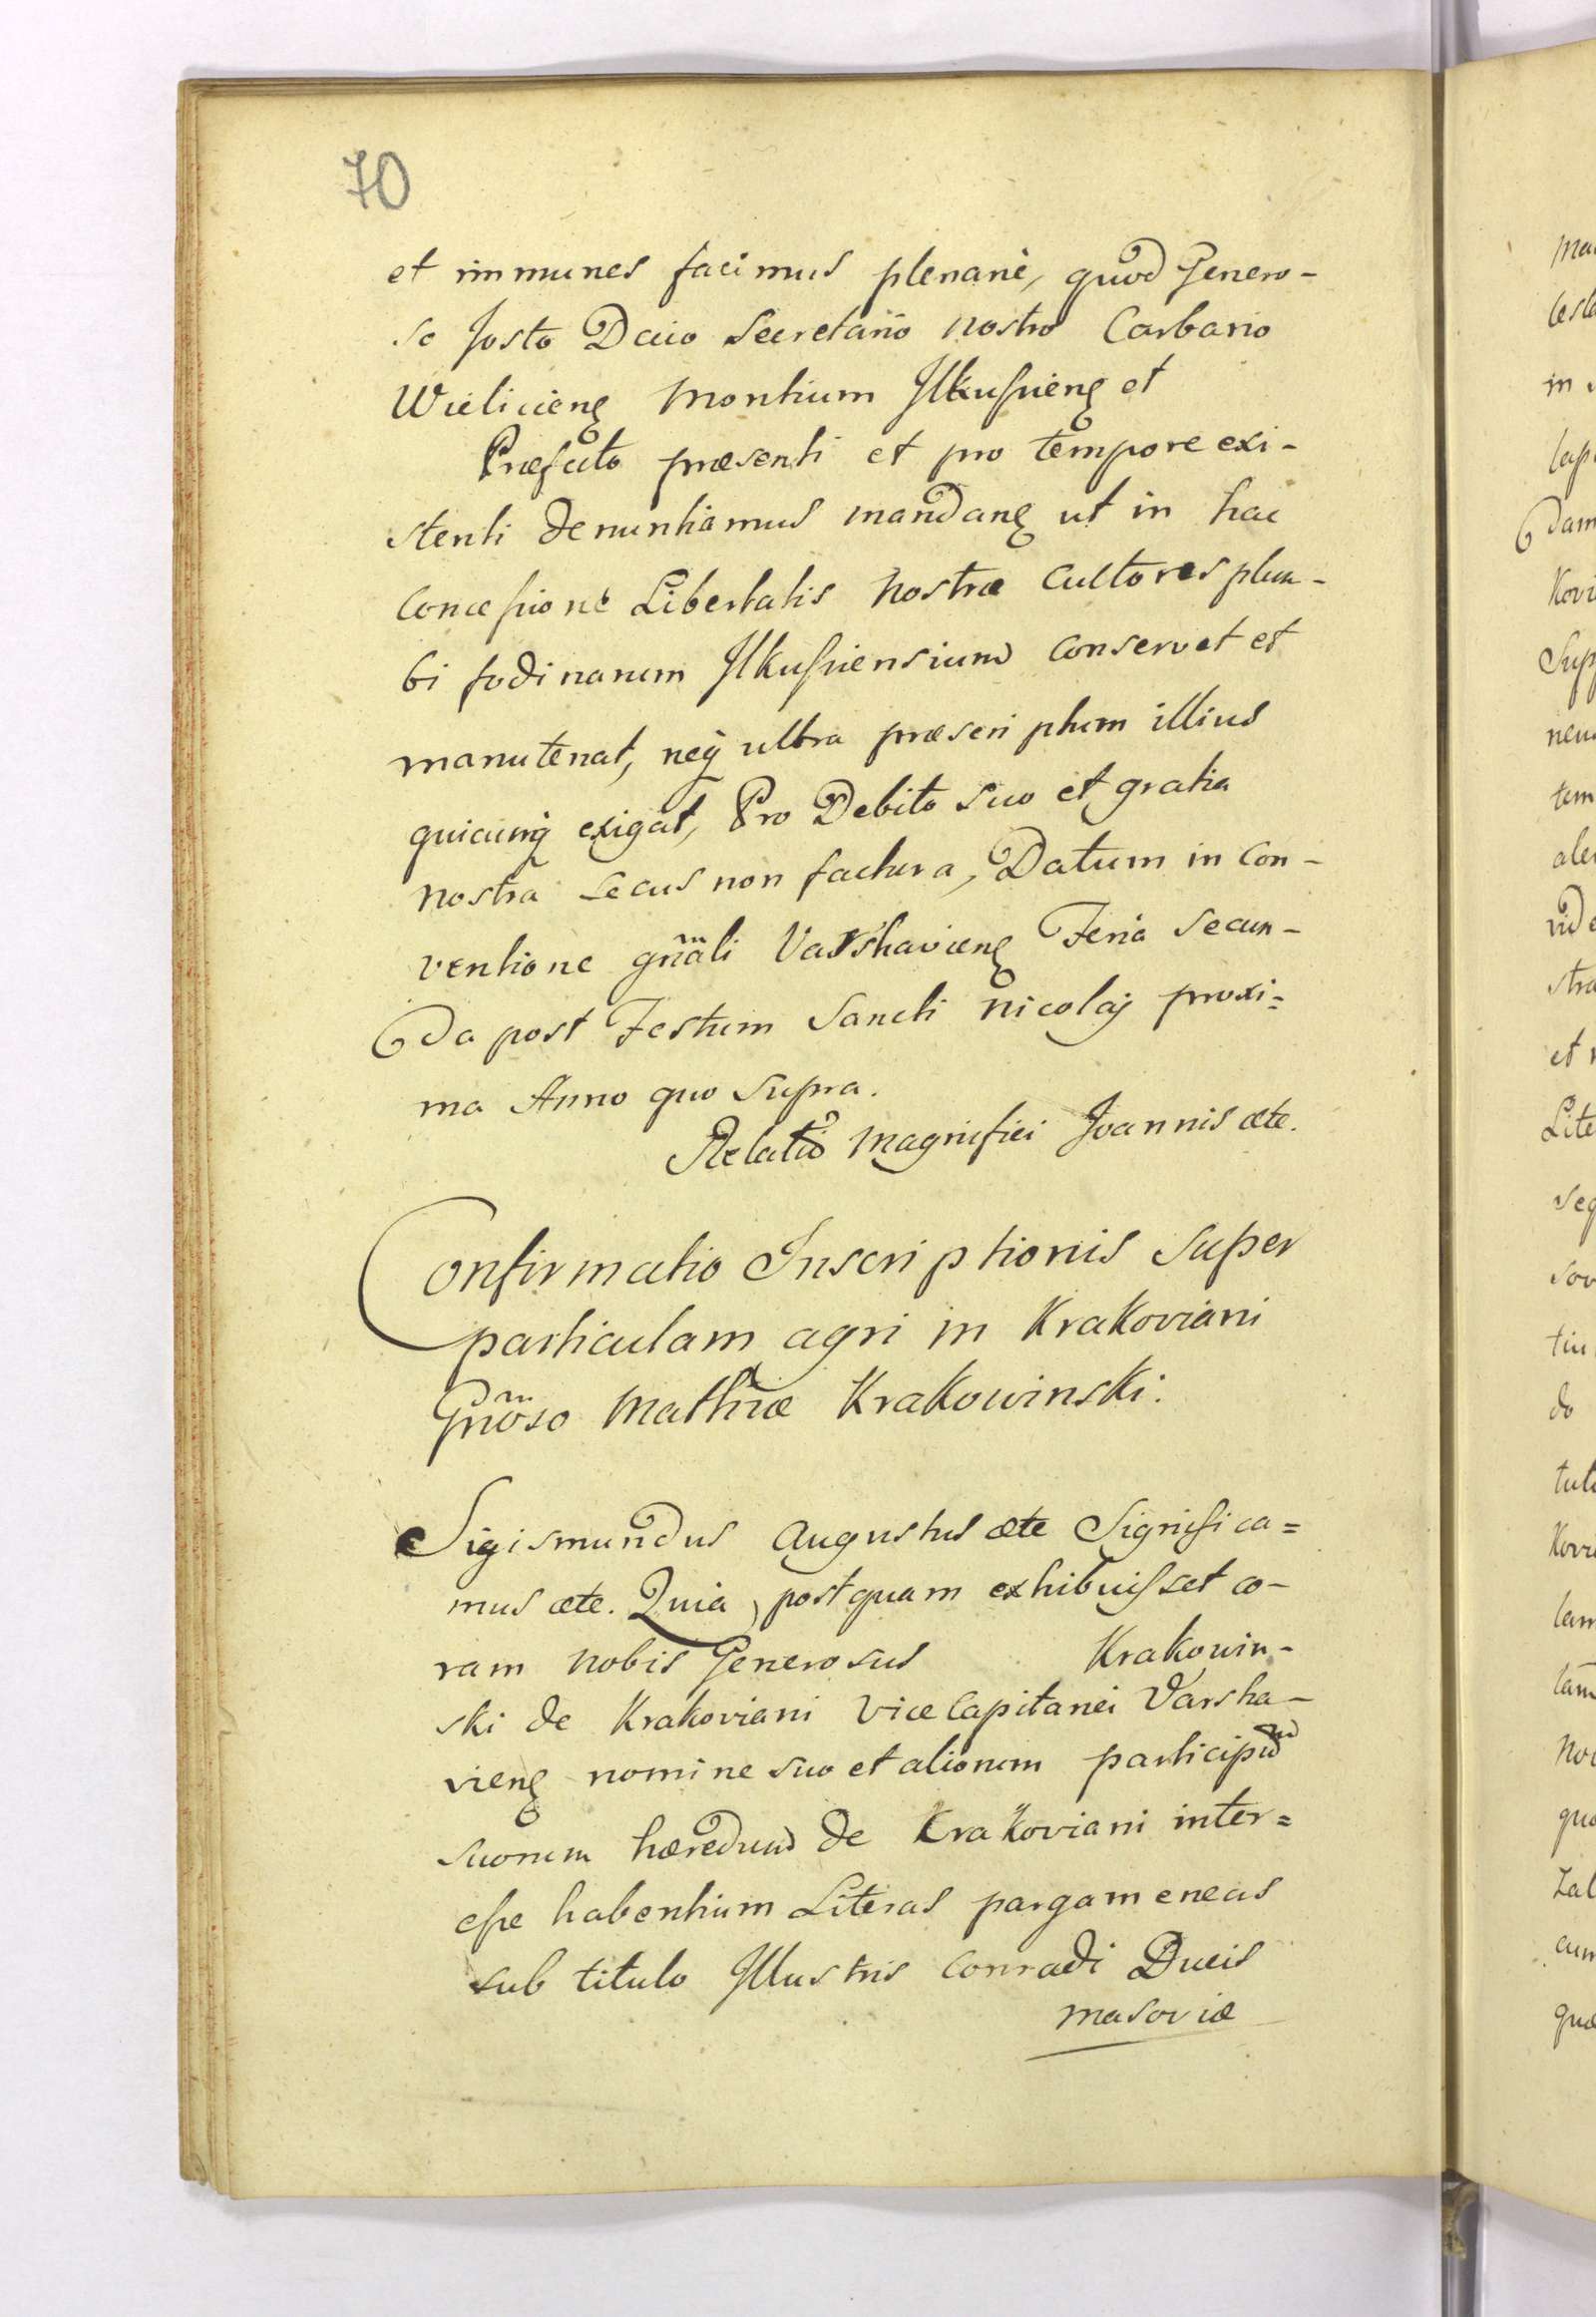 70
et immunes facimus plenarie, quod Genero-
so Josto Decio Secretario nostro Carbario
Wieliciens Montium Ilkusiens et
Præfecto præsenti et pro tempore exi-
stenti denuntiamus mandans ut in hac
Concessione Libertatis Nostræ Cultores plum-
bi fodinarum Ilkussiensium conservet et
manutenat, neq ultra præscriptum illius
quicunq exigat, Pro Debito suo et gratia
Nostra secus non factura, Datum in Con-
ventione gnãli Varshaviens Feria Secun-
da post Festum Sancti Nicolaj proxi=
ma Anno quo supra.
Relatio Magnifici Joannis ætc.
Confirmatio Inscriptionis super
particulam agri in Krakoviani
Gnõso Mathiæ Krakowinski.
Sigismundus Augustus ætc Significa=
mus ætc. Quia, postquam exhibuisset co-
ram nobis Generosus Krakowin-
ski de Krakoviani Vice Capitanei Varsha-
viens nomine suo et aliorum participum
suorum hæredum de Krakoviani inter=
esse habentium Literas pargameneas
sub titulo Illustris Conradi Ducis
Masoviæ